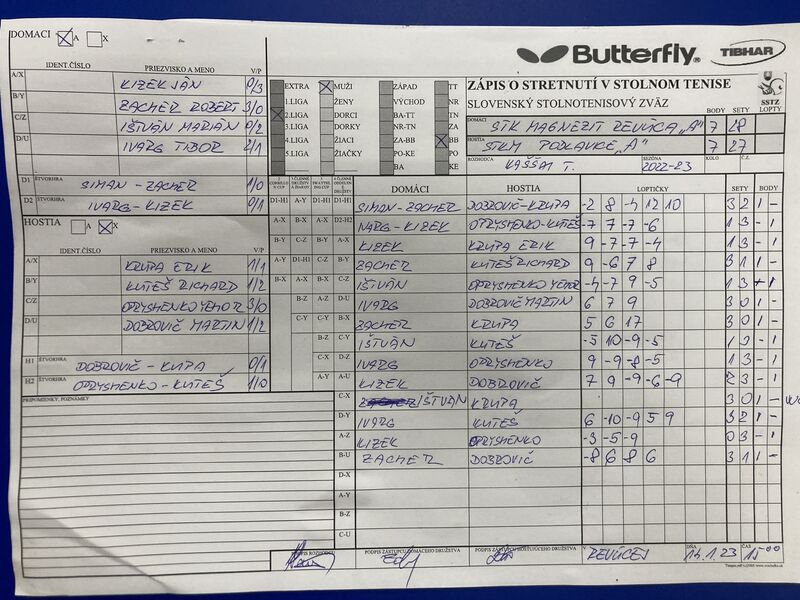 DOMACI A X
Butterfly TIBHAR
IDENT.ČÍSLO PRIEZVISKO A MENO V/P
ZÁPIS O STRETNUTÍ V STOLNOM TENISE
SLOVENSKÝ STOLNOTENISOVÝ ZVÄZ
SSTZ
BODY SETY LOPTY
A/X KIZEK JÁN 0/3
B/Y ZACHER ROBERT 3/0
C/Z IŠTVÁN MARIÁN 0/2
D/U IVARG TIBOR 2/1
EXTRA MUŽI ZÁPAD TT
1.LIGA ŽENY VÝCHOD NR
2.LIGA DORCI BA-TT TN
3.LIGA DORKY NR-TN ZA
4.LIGA ŽIACI ZA-BB BB
5.LIGA ŽIAČKY PO-KE PO
BA KE
DOMÁCI STK MAGNEZIT REVÚCA „A" 7 28
HOSTIA STKM PODLAVICE „A" 7 27
ROZHODCA KAŠŠAI T. SEZÓNA 2022-23 KOLO Č.Z.
D1 ŠTVORHRA SIMAN - ZACHER 1/0
D2 ŠTVORHRA IVARG - KIZEK 0/1
HOSTIA A X
IDENT.ČÍSLO PRIEZVISKO A MENO V/P
A/X KRUPA ERIK 1/1
B/Y KUTEŠ RICHARD 1/2
C/Z OPRYSHENKO YEHOR 3/0
D/U DOBROVIČ MARTIN 1/2
H1 ŠTVORHRA DOBROVIČ - KRUPA 0/1
H2 ŠTVORHRA OPRYSHENKO - KUTEŠ 1/0
PRIPOMIENKY, POZNÁMKY
DOMÁCI HOSTIA LOPTIČKY SETY BODY
D1-H1 A-Y D1-H1 D1-H1 SIMAN - ZACHER DOBROVIČ - KRUPA -2 8 -4 12 10 3 2 1 -
A-X B-X A-X D2-H2 IVARG - KIZEK OPRYSHENKO - KUTEŠ -7 7 -7 -6 1 3 - 1
B-Y C-Z B-Y A-X KIZEK KRUPA ERIK 9 -7 -7 -4 1 3 - 1
A-Y D1-H1 C-Z B-Y ZACHER KUTEŠ RICHARD 9 -6 7 8 3 1 1 -
B-X A-X B-X C-Z IŠTVÁN OPRYSHENKO YEHOR -4 -7 9 -5 1 3 - 1
B-Z A-Z D-U IVARG DOBROVIČ MARTIN 6 7 9 3 0 1 -
C-Y C-Y B-X ZACHER KRUPA 5 6 17 3 0 1 -
B-Z C-Y IŠTVÁN KUTEŠ -5 10 -9 -5 1 3 - 1
C-X D-Z IVARG OPRYSHENKO 9 -9 -8 -5 1 3 - 1
A-Y A-U KIZEK DOBROVIČ 7 9 -9 -6 -9 2 3 - 1
C-X IŠTVÁN KRUPA 3 0 1 -
D-Y IVARG KUTEŠ 6 -10 -9 5 9 3 2 1 -
A-Z KIZEK OPRYSHENKO -3 -5 -9 0 3 - 1
B-U ZACHER DOBROVIČ -8 6 8 6 3 1 1 -
D-X
A-Y
B-Z
C-U
PODPIS ROZHODCU PODPIS ZÁSTUPCU DOMÁCEHO DRUŽSTVA PODPIS ZÁSTUPCU HOSŤUJÚCEHO DRUŽSTVA V REVÚCEJ DŇA 14.1.23 ČAS 15 00